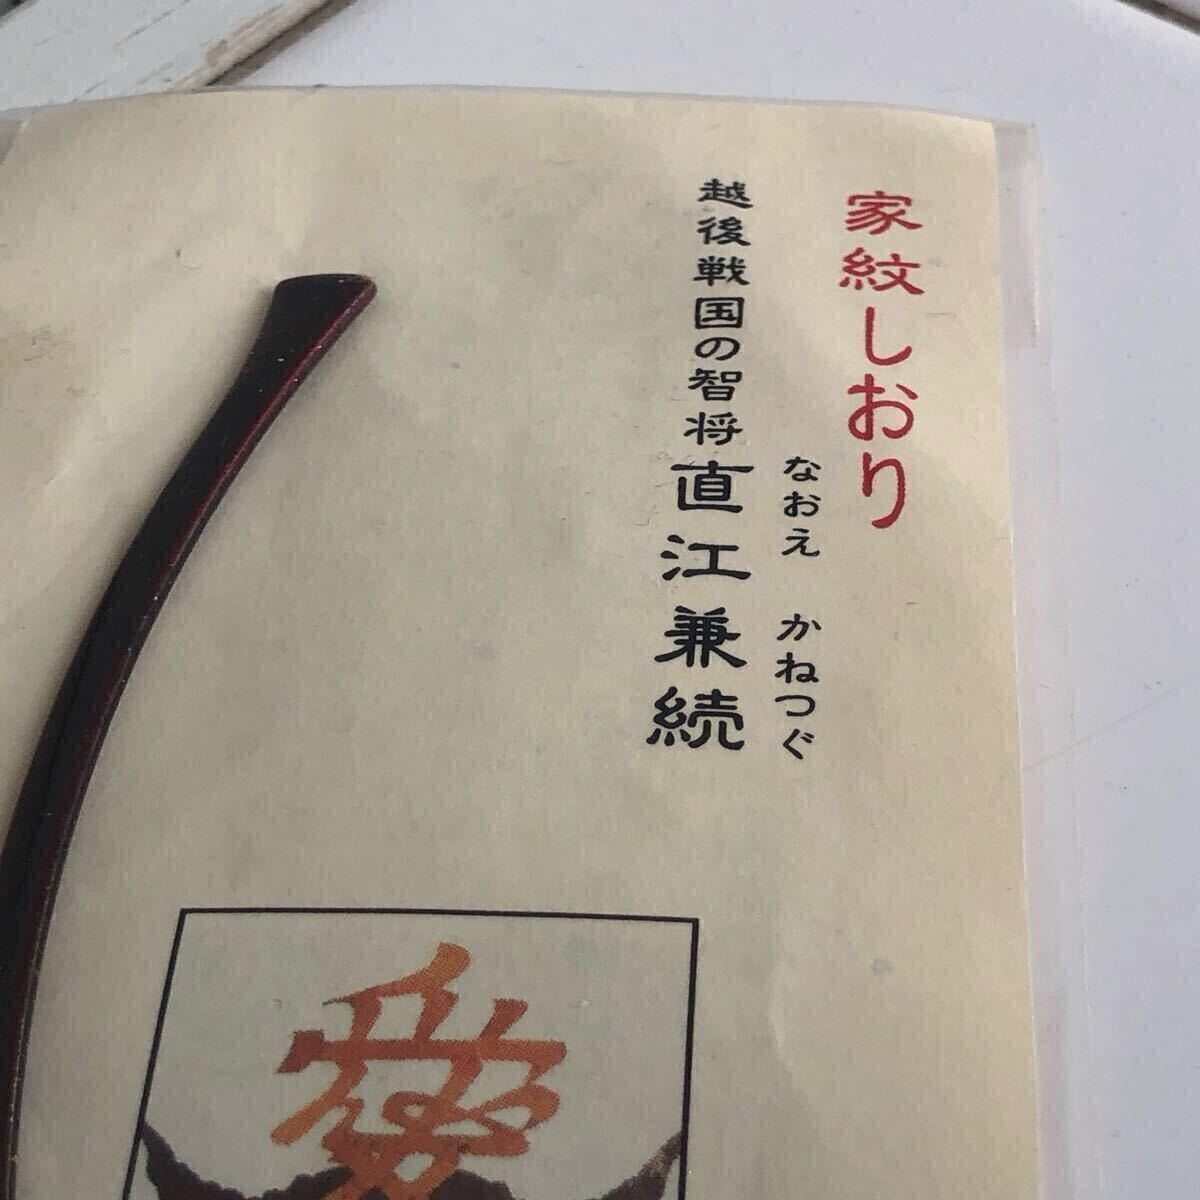 家紋しおり
なおえ かねつぐ
越後戦国の智将直江兼続
愛